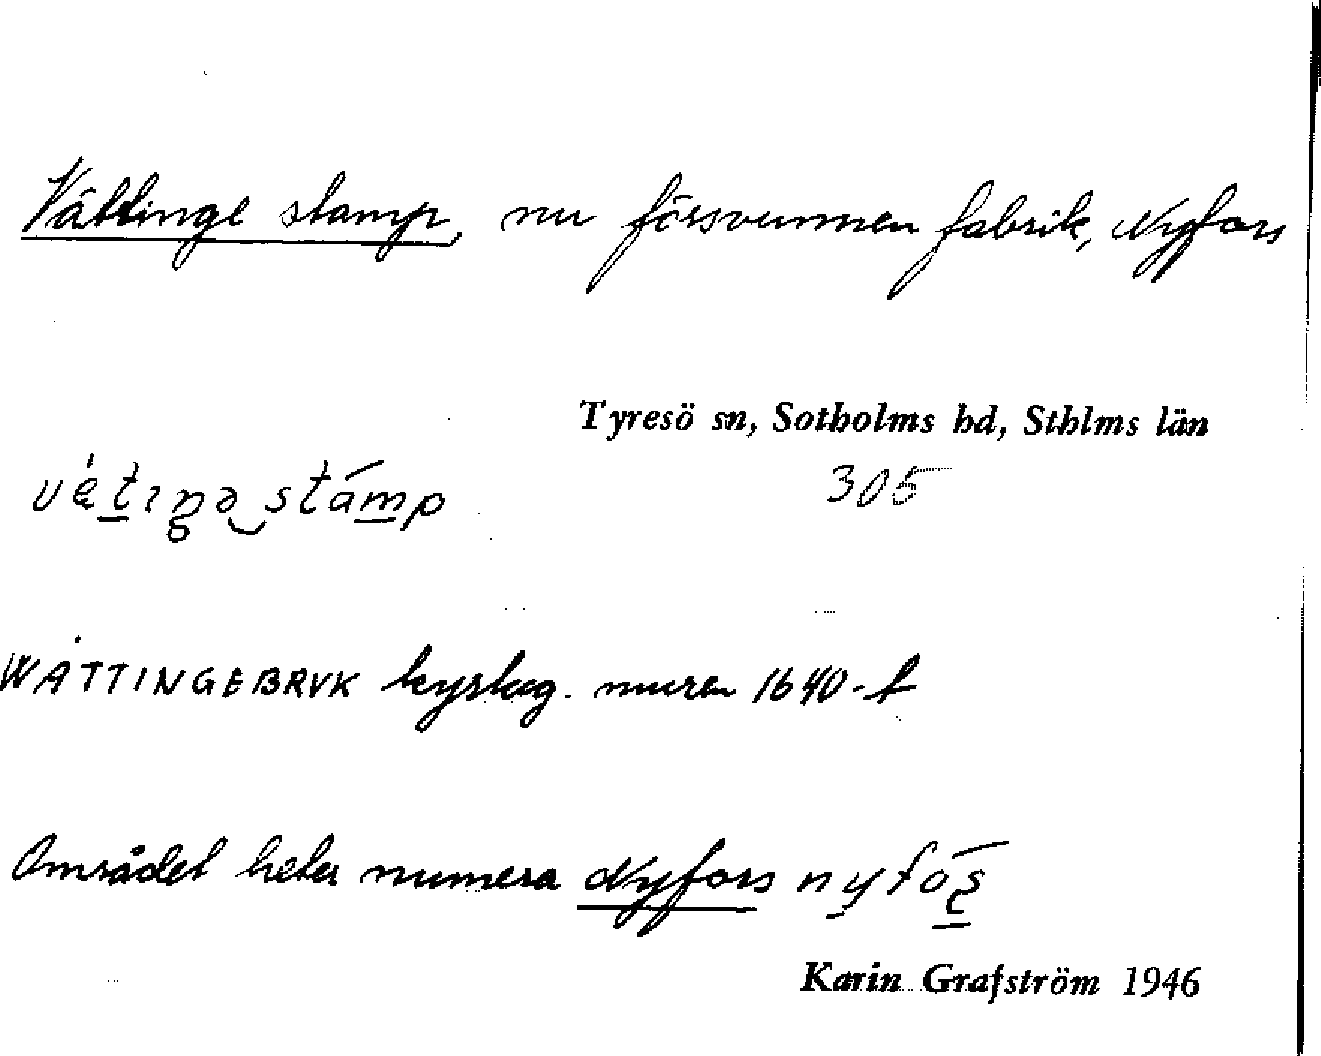 Vättinge stamp, nu försvunnen fabrik, Nyfors
Tyresö sn, Sotholms hd, Sthlms län
305
WÅTTINGEBRVK muren 1640-t
Området heter numera Nyfors
Karin Grafström 1946